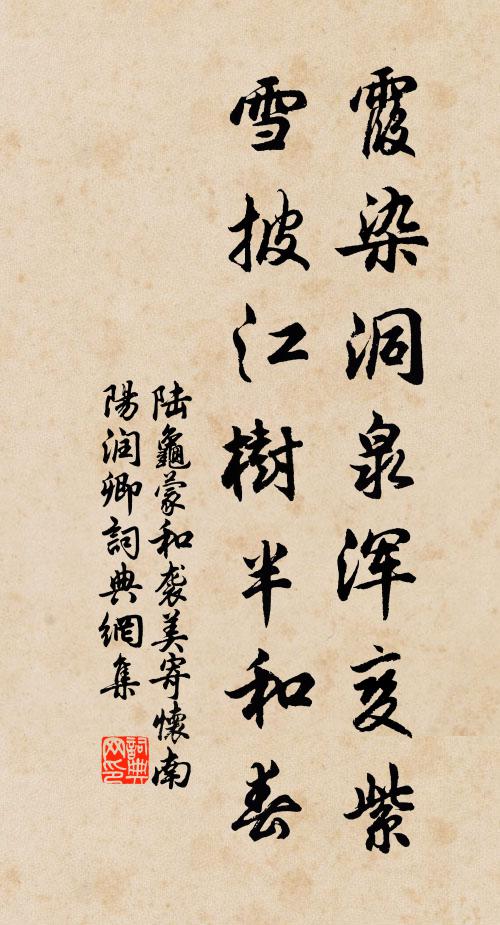 霞染洞泉浑变紫
雪披江樹半和春
陆龜蒙和袭美寄懷南
陽润卿詞典網集
詞典
网印